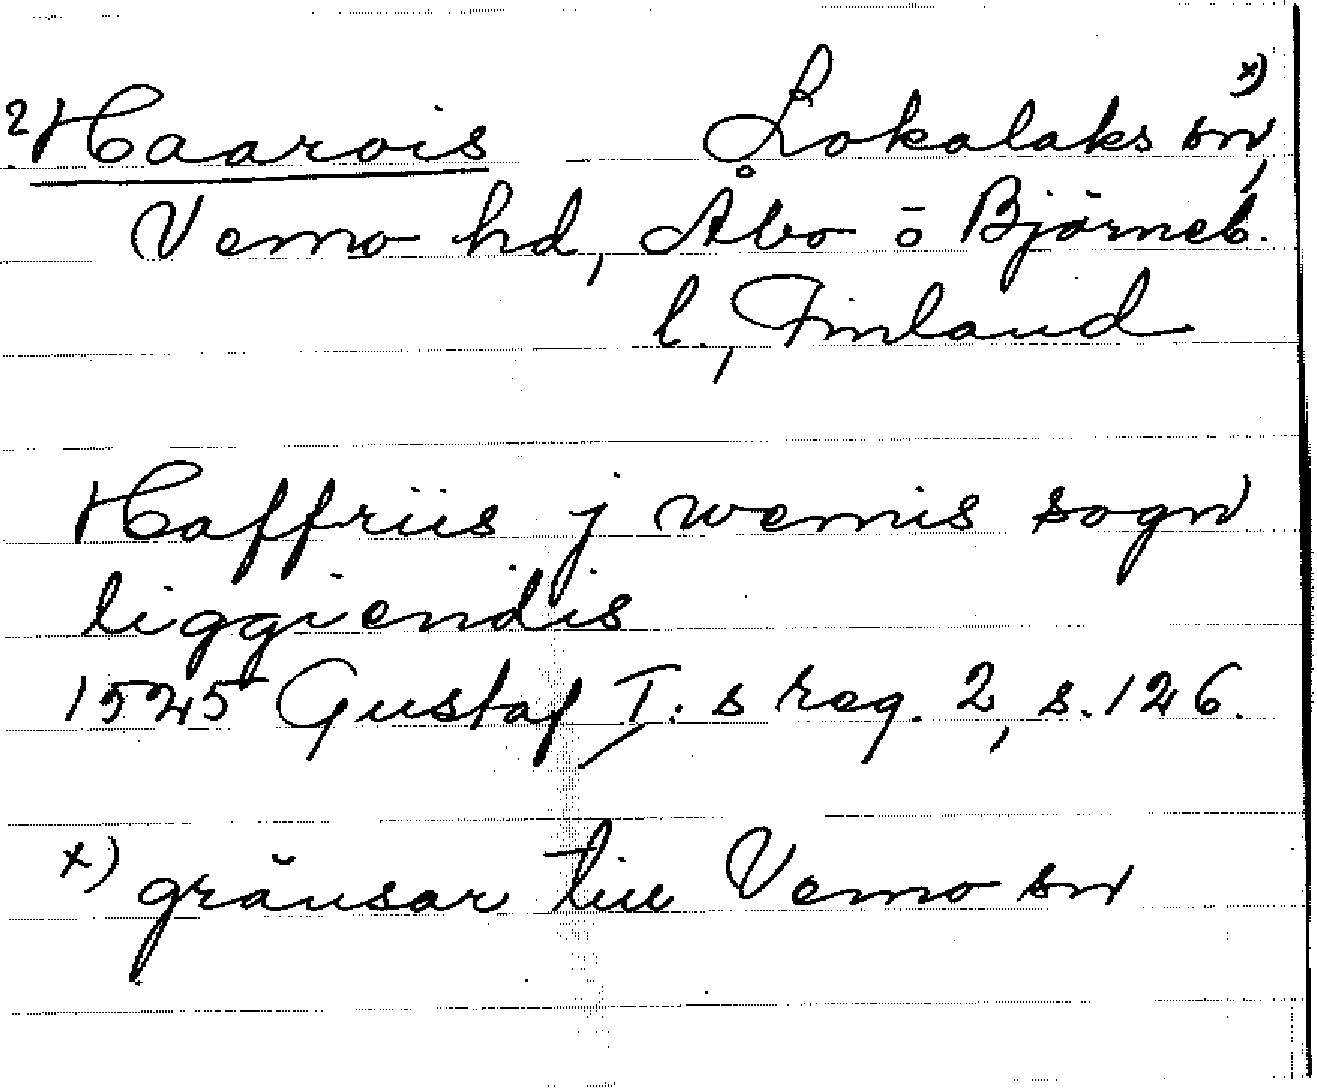 ? Haarois Lokalaks sn, x)
Vemo hd, Åbo o Björneb.
l., Finland
Haffriis j wemis sogn
liggiendis
1525 Gustaf I:s reg. 2, s. 126.
x) gränsar till Vemo sn